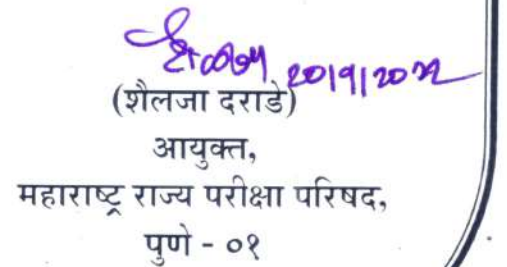 20/9/2022
(शैलजा दराडे)
आयुक्त,
महाराष्ट्र राज्य परीक्षा परिषद,
पुणे - ०१